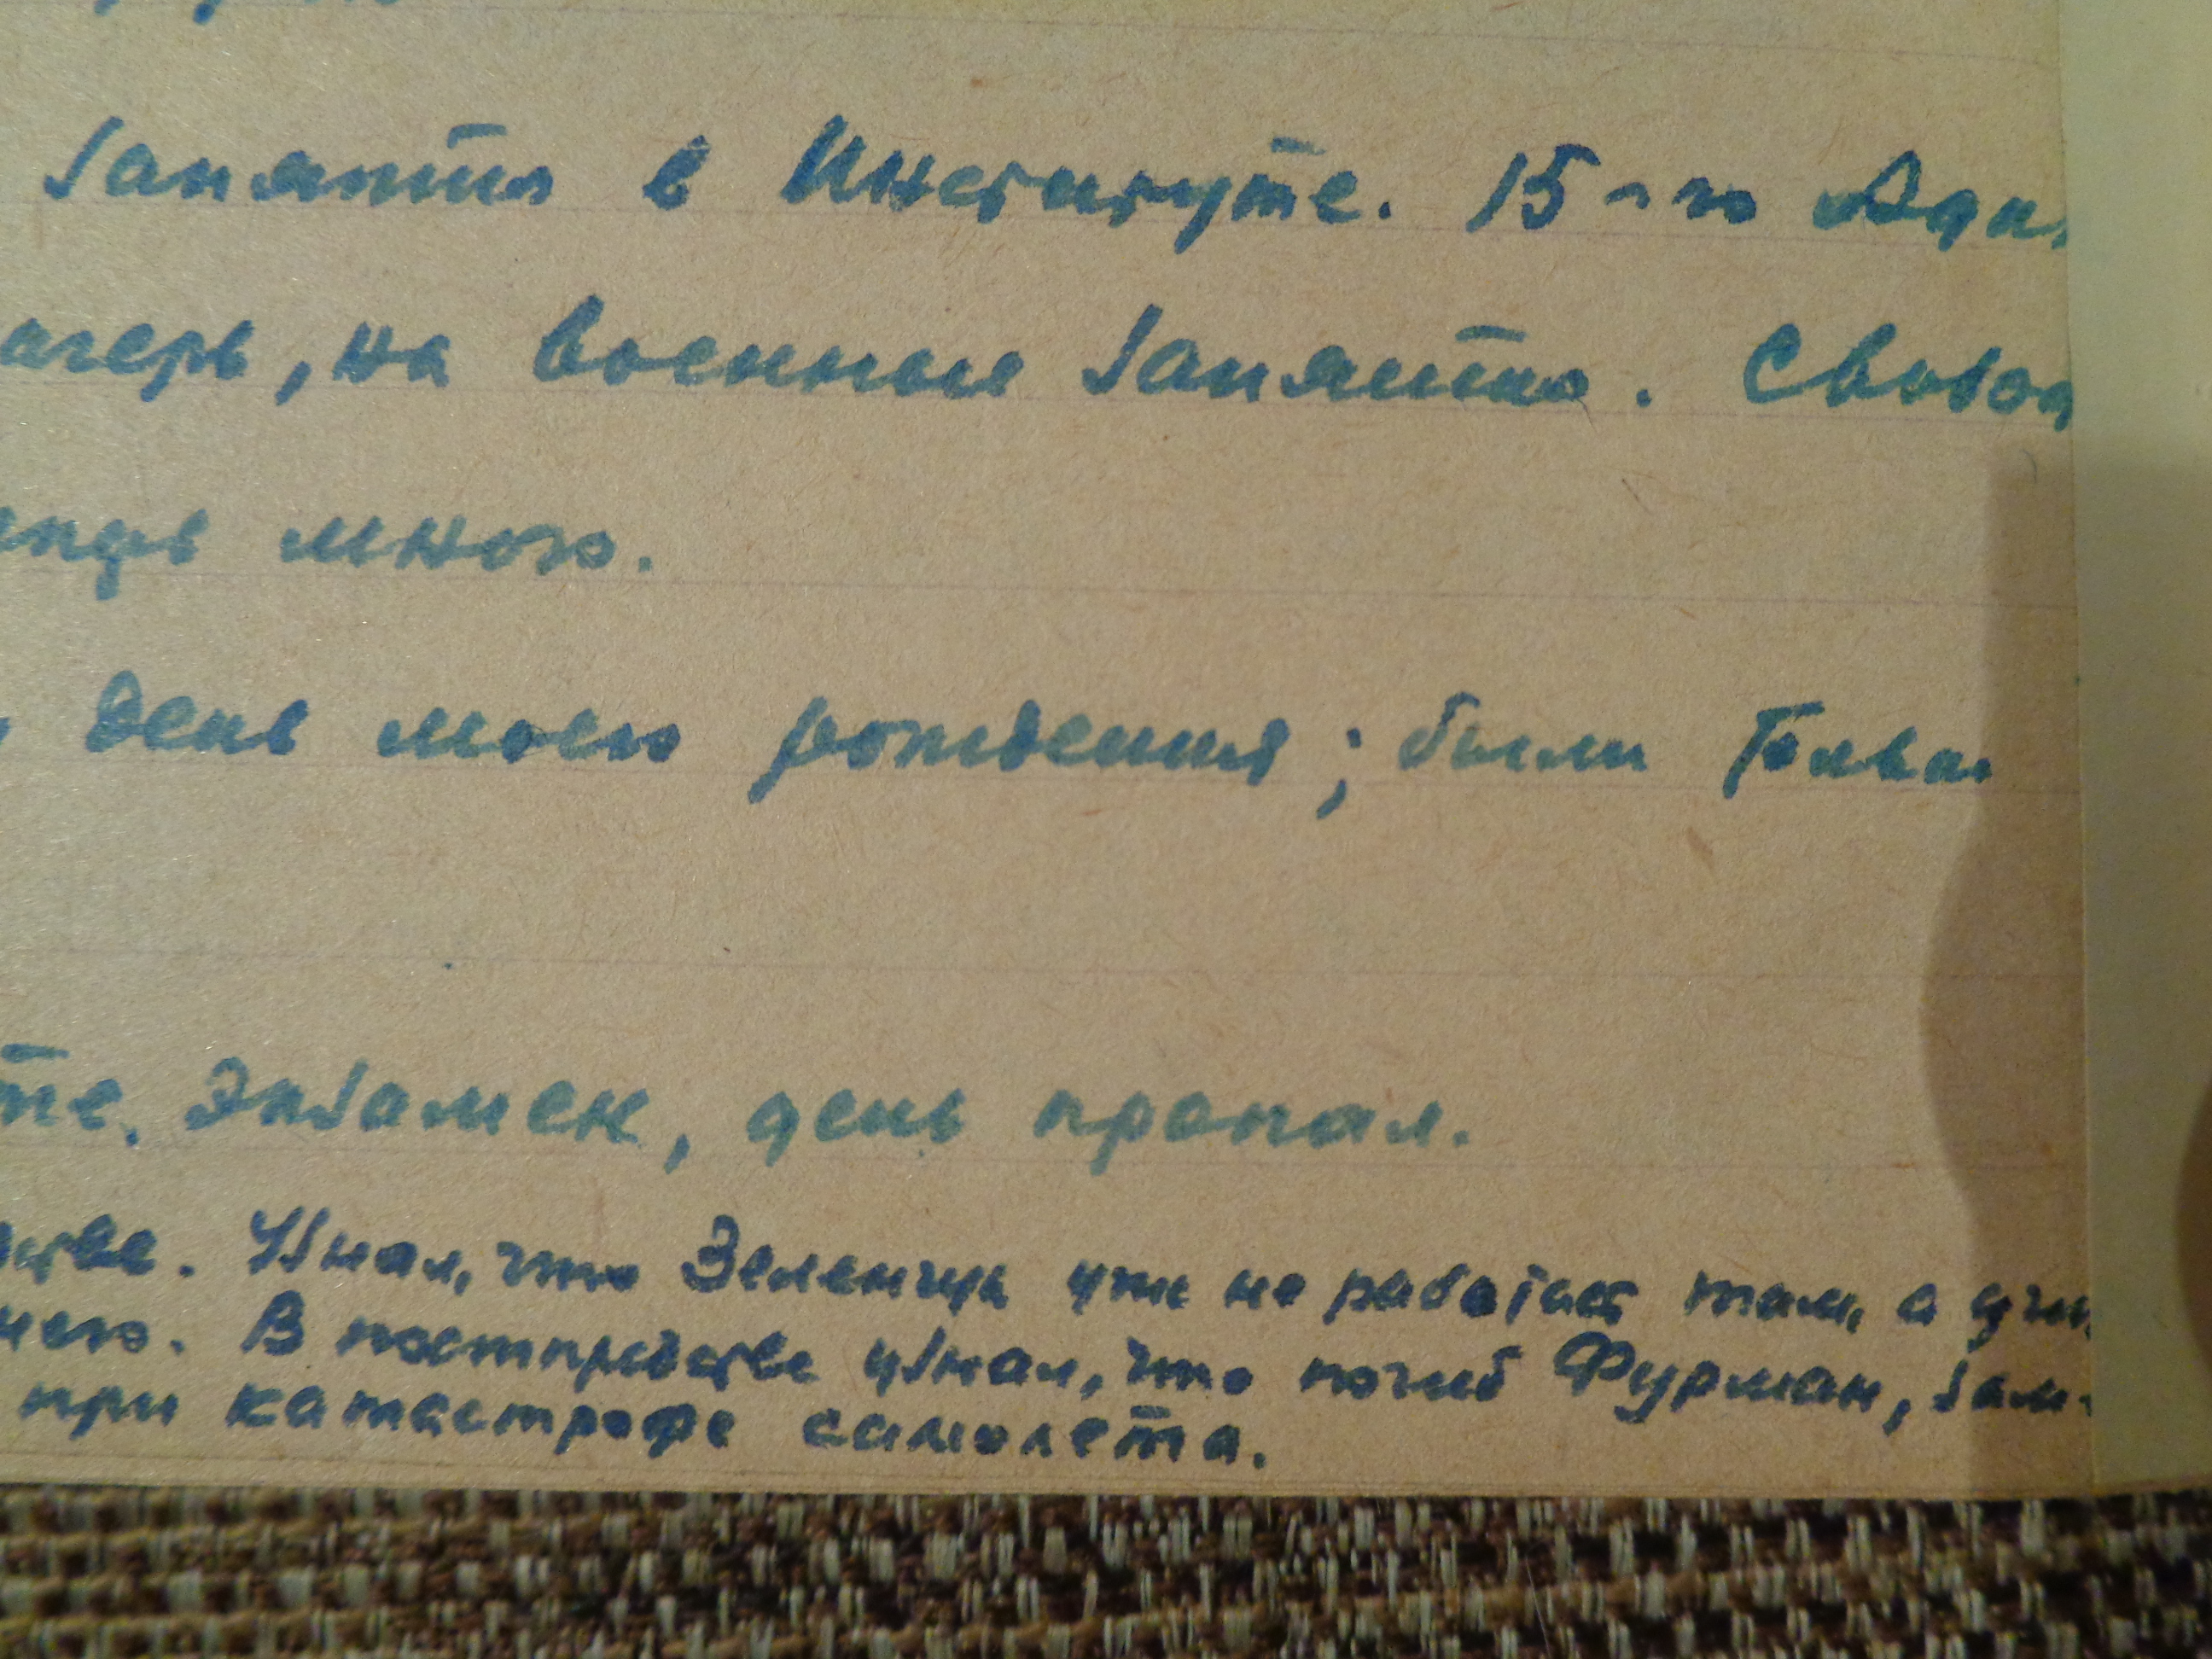 Занятия в Институте. 15-го Ади
агерь, на военные занятия. Свобод
много.
день моего рождения; были
те. Экзамен, день пропал.
стве. Узнал, что Зеленчук уже не работает там, а учи
него. В постпредстве узнал, что погиб Фурман, зам-
при катастрофе самолёта.